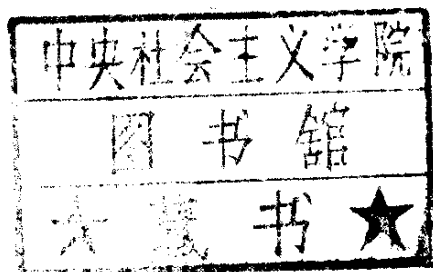 中央社会主义学院
图书馆
★ 书 ★